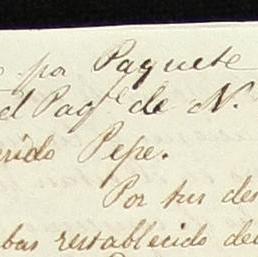 por Paquete
el Paqte de N.
erido Pepe.
Por tus des
bas restablecido del